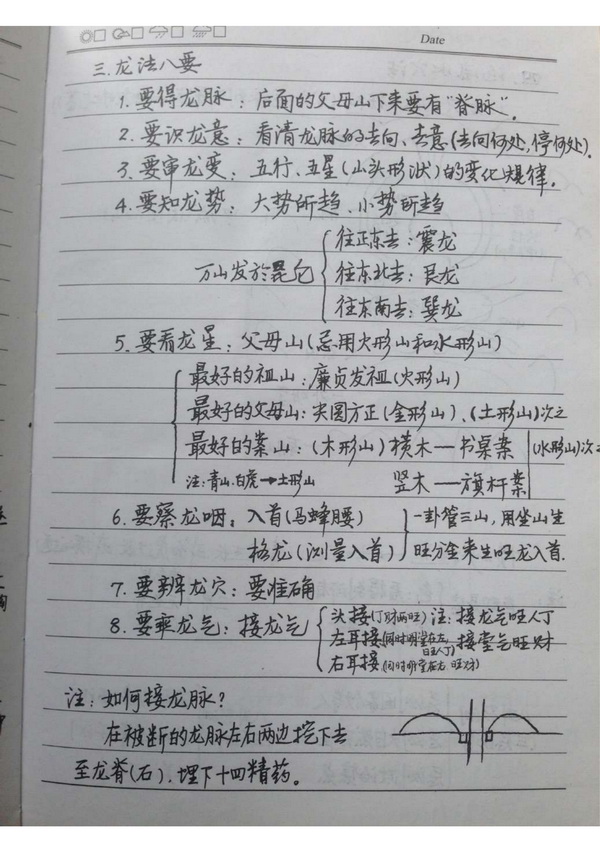 Date
三.龙法八要
1.要得龙脉：后面的父母山下来要有"脊脉"。
2.要识龙意：看清龙脉的去向、去意(去向何处,停何处).
3.要审龙变：五行、五星(山头形状)的变化规律。
4.要知龙势：大势所趋、小势所趋
往正东去：震龙
万山发於昆仑 往东北去：艮龙
往东南去：巽龙
5.要看龙星：父母山(忌用火形山和水形山)
最好的祖山：廉贞发祖(火形山)
最好的父母山：尖圆方正(金形山)、(土形山)次之
最好的案山：(木形山)横木—书桌案 (水形山)次之
注：青山.白虎→土形山 竖木—旗杆案
6.要察龙咽：入首(马蜂腰) 一卦管三山,用坐山生
格龙(测量入首) 旺分金来生旺龙入首.
7.要辨龙穴：要准确
8.要乘龙气：接龙气 头接(丁财两旺) 注：接龙气旺人丁
左耳接(同时明堂在左,旺人丁) 接堂气旺财
右耳接(同时明堂在右 旺财)
注：如何接龙脉？
在被断的龙脉左右两边挖下去
至龙脊(石).埋下十四精药。